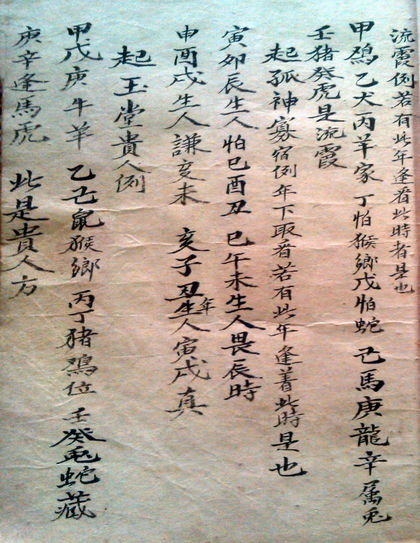 流霞例若有此年逢着此時者是也
甲鸡乙犬丙羊家 丁怕猴鄉戊怕蛇 己馬庚龍辛属兎
壬猪癸虎是流霞
起孤神寡宿例年下取看若有此年逢着此時是也
寅卯辰生人怕巳酉丑 巳午未生人畏辰時
申酉戌生人謙亥未 亥子丑生年人寅戌真
起玉堂貴人例
甲戊庚牛羊 乙己鼠猴鄉 丙丁猪鸡位 壬癸兎蛇藏
庚辛逢馬虎 此是貴人方